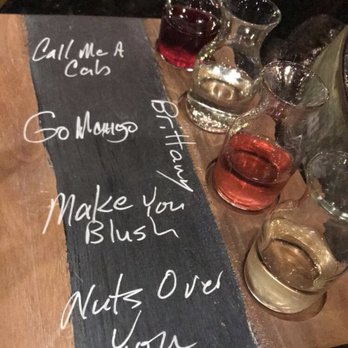 Call Me A
Cab
Go Mango
Brittany
Make You
Blush
Nuts Over
You